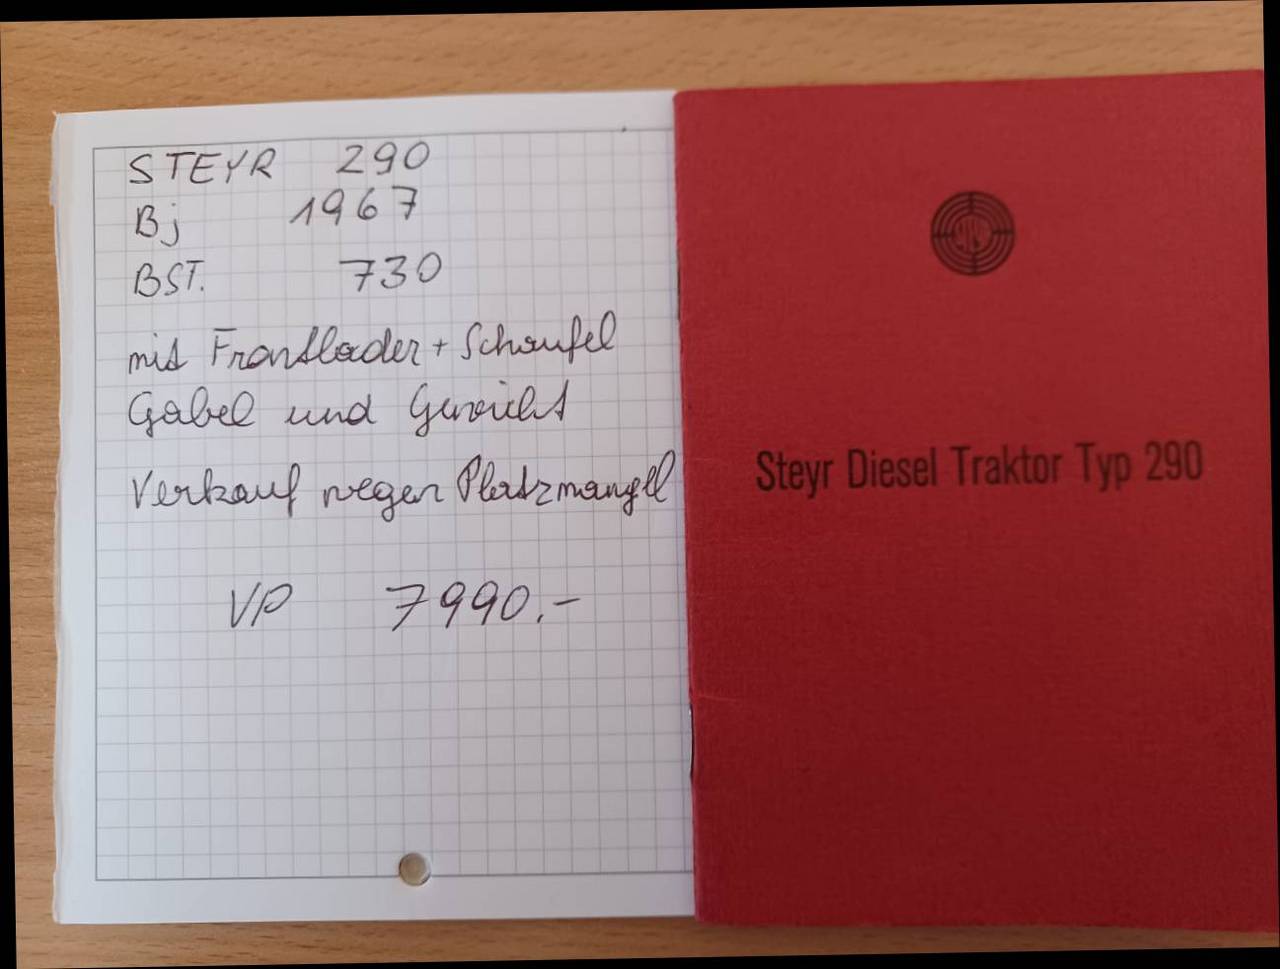 STEYR 290
Bj 1967
BST. 730
mit Frontlader + Schaufel
Gabel und Gewicht
Verkauf wegen Platzmangel
VP 7990.-
STEYR
Steyr Diesel Traktor Typ 290